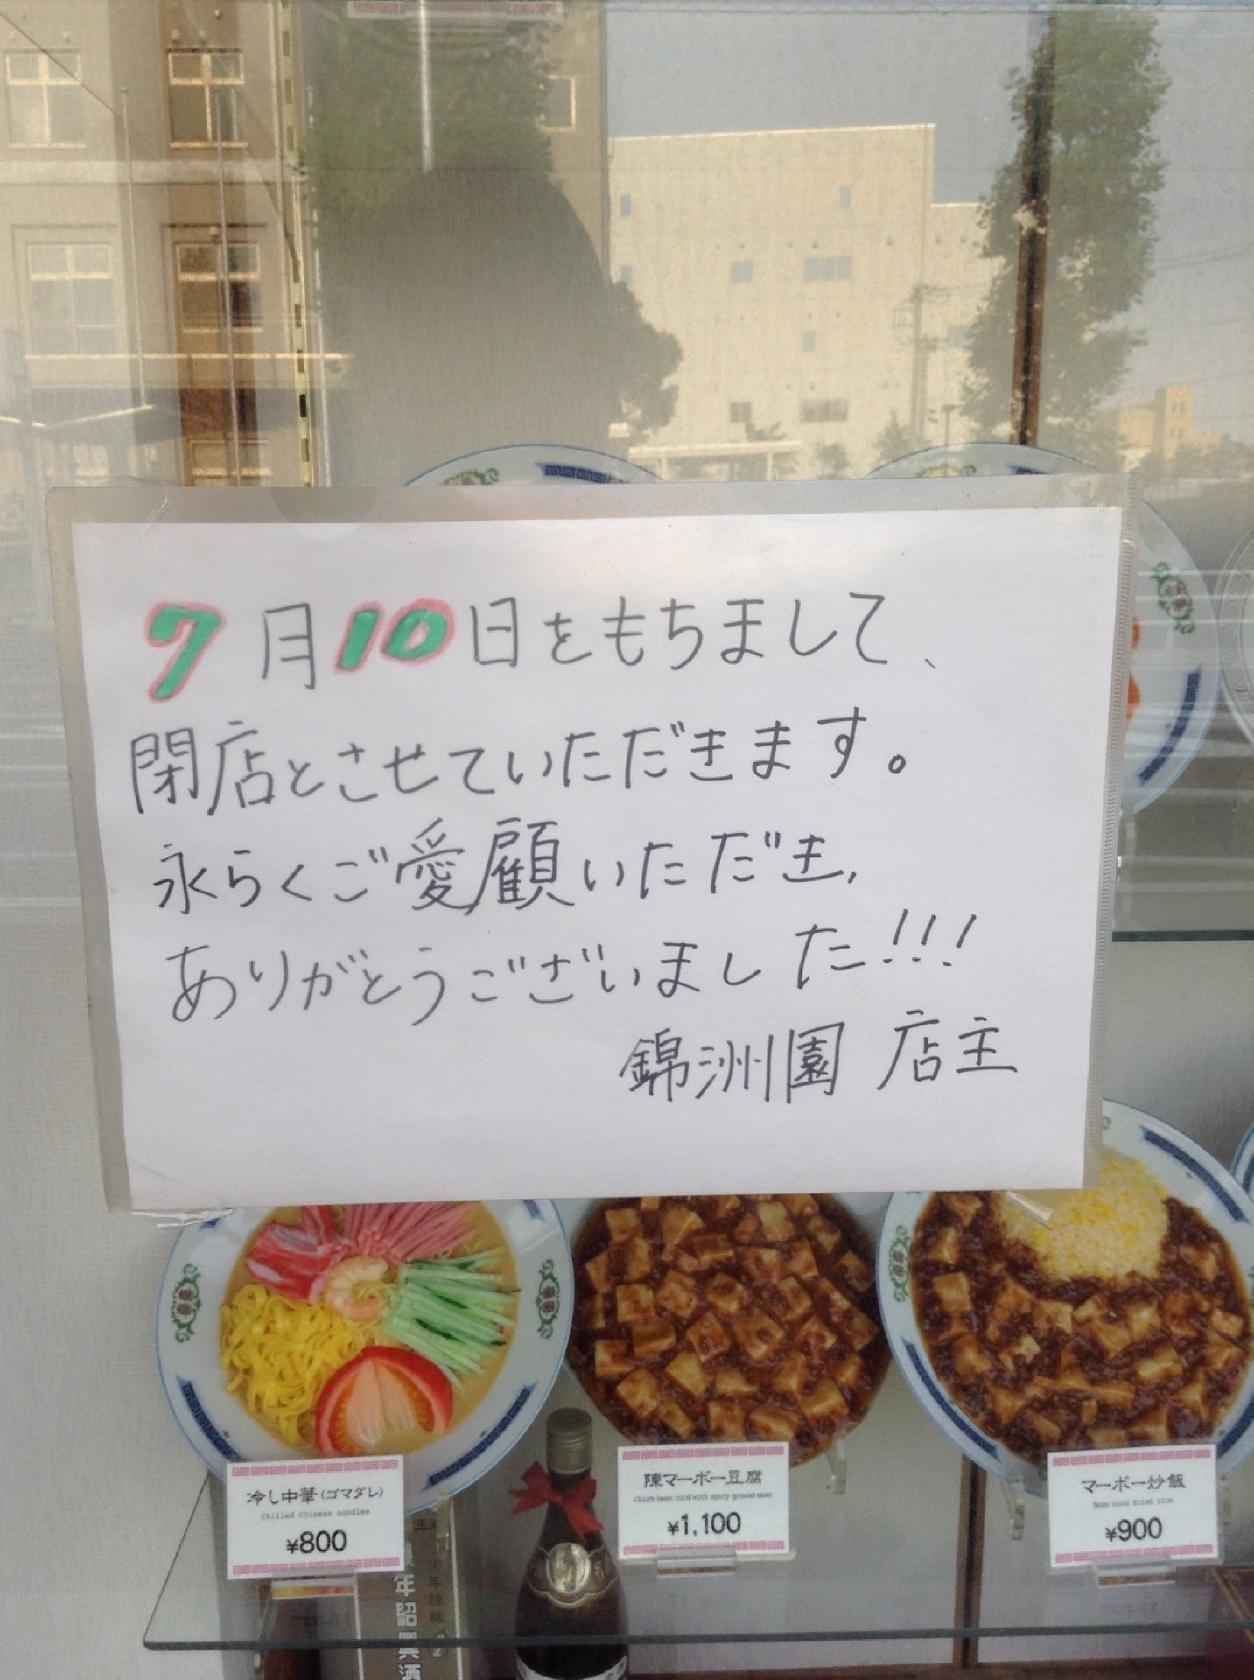 7月10日をもちまして、
閉店とさせていただきます。
永らくご愛顧いただき、
ありがとうございました!!!
錦洲園 店主
冷し中華(ゴマダレ)
Chilled Chinese noodles
¥800
陳マーボー豆腐
Chin's bean curd with spicy ground meat
¥1,100
マーボー炒飯
Bean curd fried rice
¥900
年紹興酒